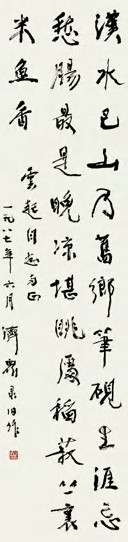 漢水巴山乃舊鄉筆硯生涯忘
愁腸最是晚涼堪眺處稻荻丛裏
米魚香 雲起同志正
一九八七年六月濟眾录旧作